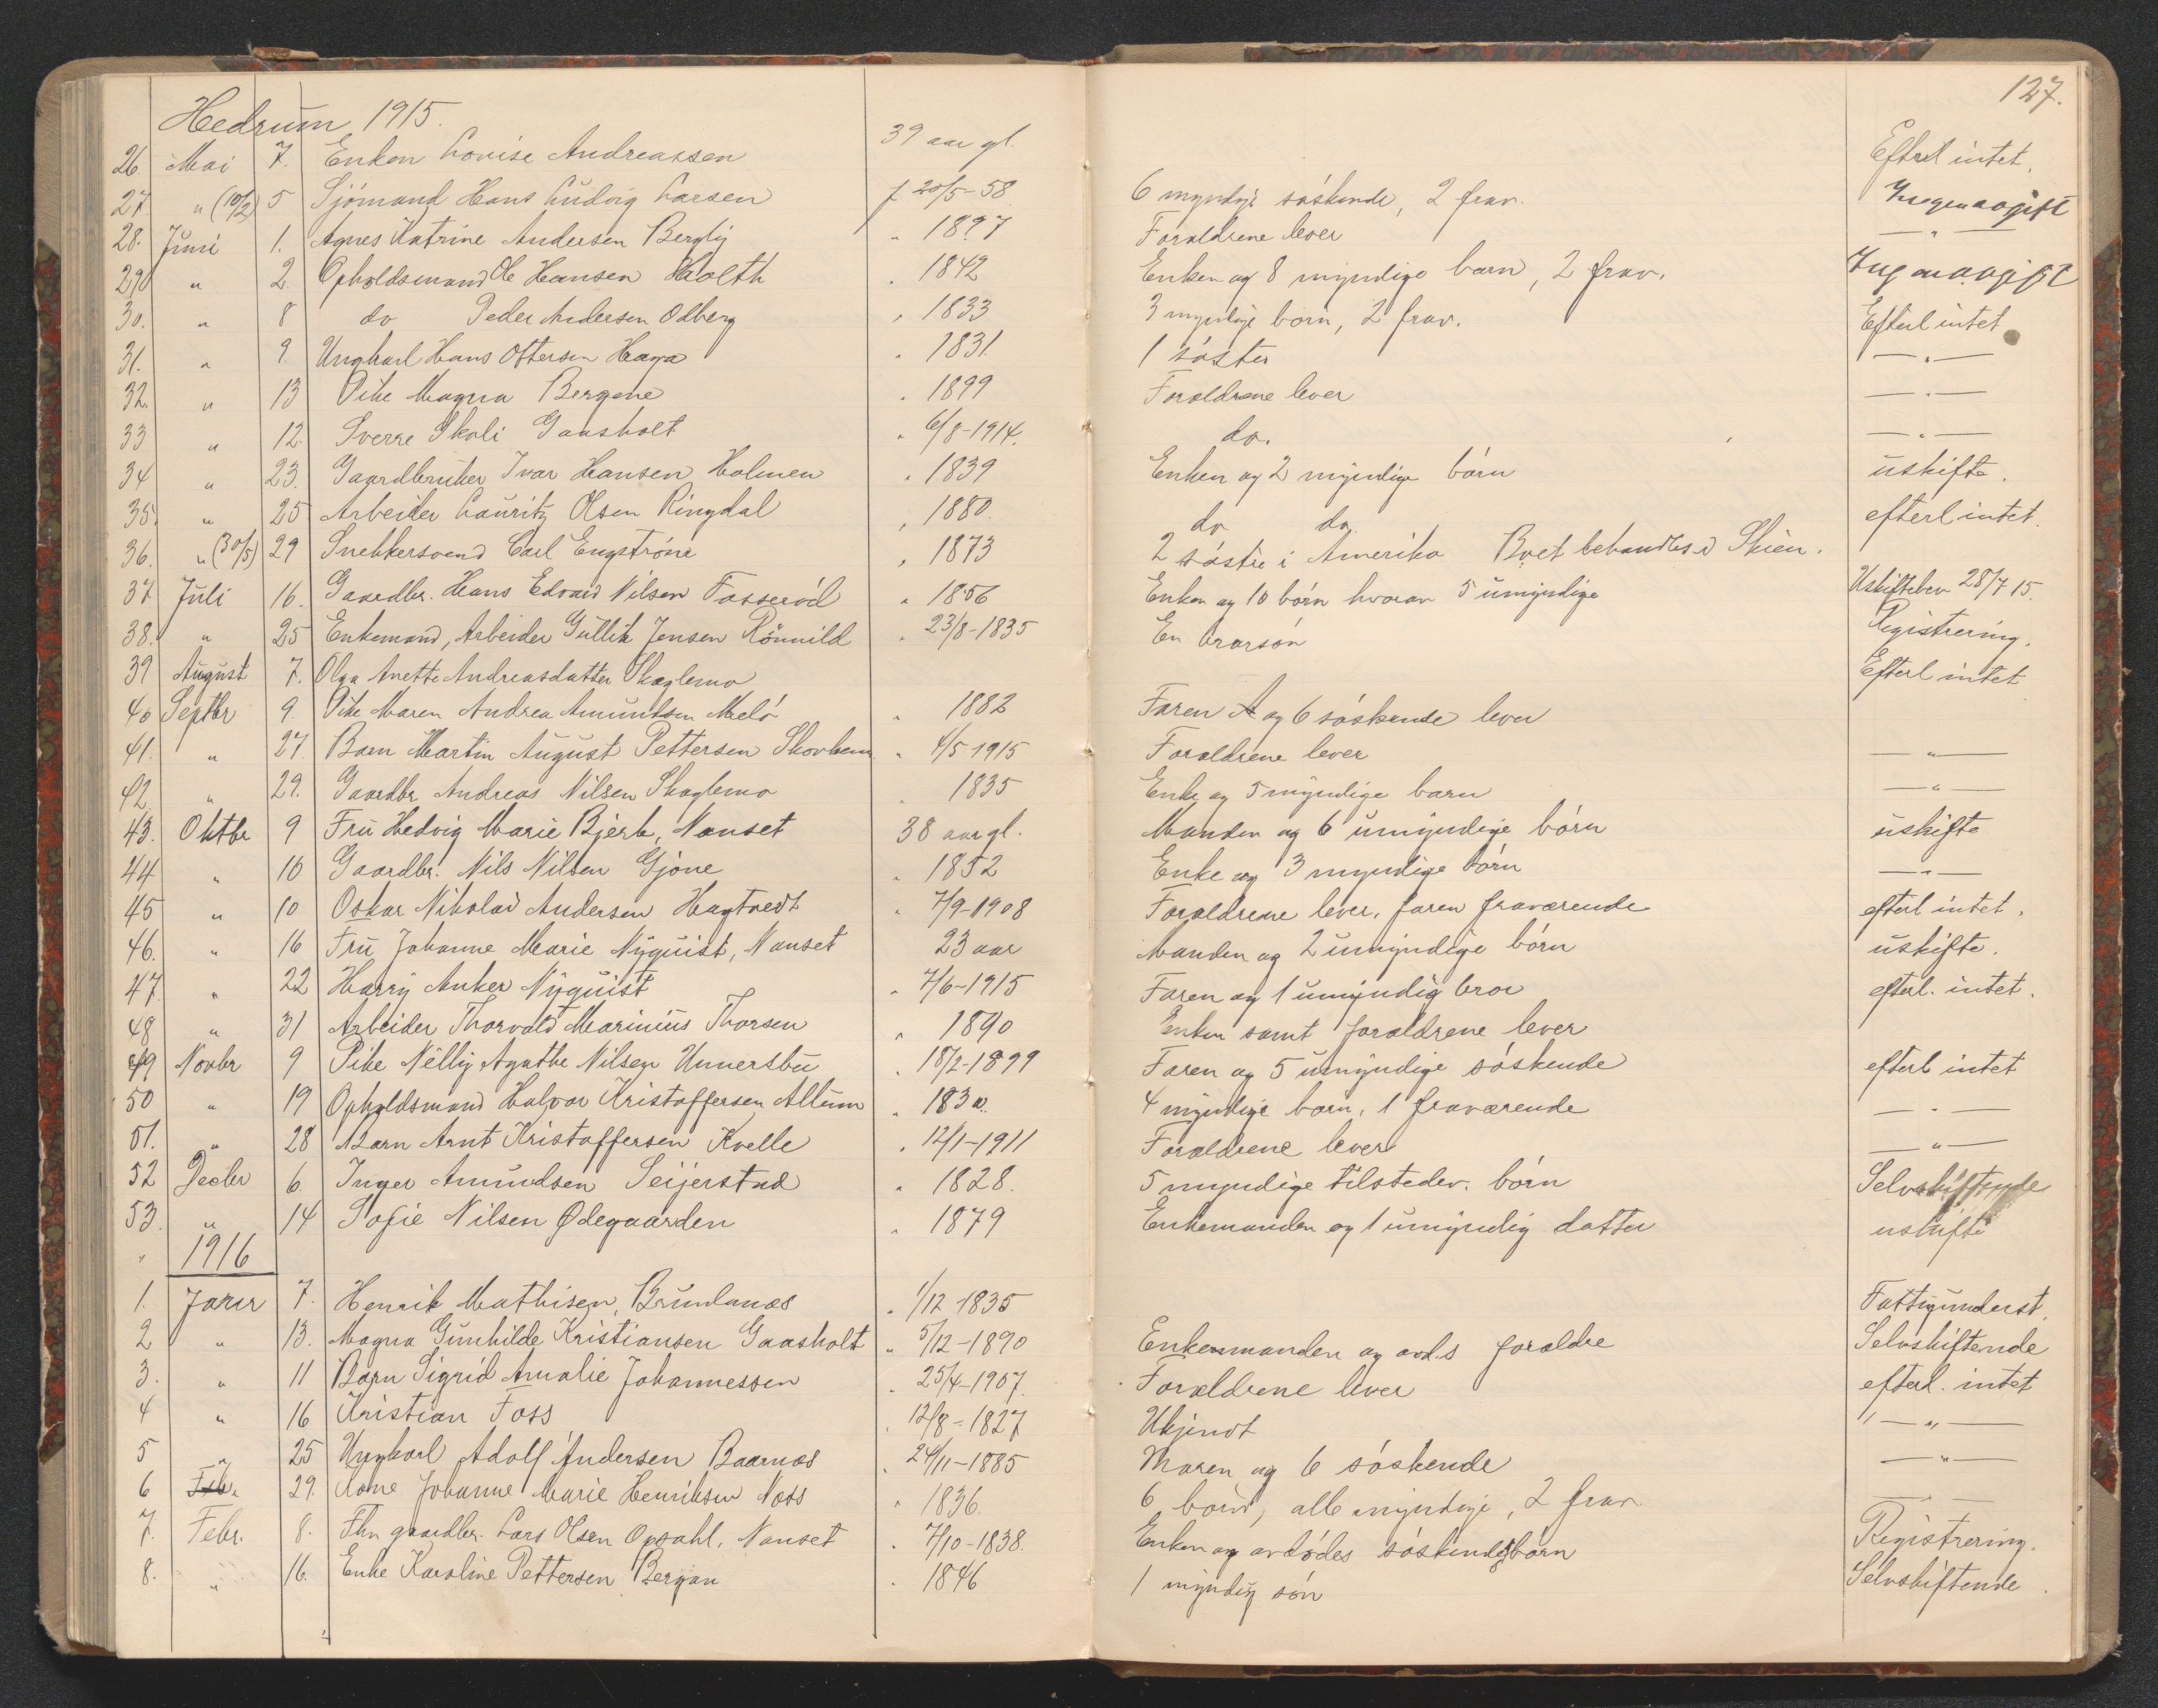 127.
Hedrum 1915.
26. Mai 7. Enken Lovise Andreassen 39 aar gl. Efterl intet.
27. " (10/2) 5 Sjömand Hans Ludvig Larsen f 20/5-58 6 myndige söskende, 2 frav. Ingen avgift
28. Juni 1. Agnes Katrine Andersen Berglÿ " 1897 Forældrene lever — " —
29 " 2. Opholdsmand Ole Hansen Holth " 1842 Enken og 8 myndige barn, 2 frav. Ingen avgift
30. " 8 do Peder Andersen Odberg " 1833 3 myndige börn, 2 frav. Efterl intet
31. " 9. Ungkarl Hans Ottersen Haga " 1831 1 söster — " —
32. " 13 Pike Magna Bergene " 1899 Forældrene lever — " —
33 " 12. Sverre Skoli Gaasholt " 6/8-1914. do. — " —
34 " 23. Gaardbruker Ivar Hansen Holmen " 1839 Enken og 2 myndige börn uskifte.
35. " 25 Arbeider Lauritz Olsen Ringdal " 1880. do do efterl intet.
36. " (30/5) 29 Snekkersvend Carl Engströne " 1873 2 söstre i Amerika Boet behandles i Skien.
37 Juli 16. Gaardbr. Hans Edvard Nilsen Fosseröd " 1856 Enken og 10 börn hvorav 5 umyndige Uskiftebev 28/7 15.
38. " 25 Enkemand, Arbeider Gullik Jensen Rönnild " 23/8-1835 En brorsön Registrering.
39 August 7. Olga Anette Andreasdatter Skaglemo Efterl intet
40 Septbr 9. Pike Maren Andrea Amundsen Melö " 1882 Faren og 6 söskende lever
41. " 27. Barn Martin August Pettersen Skovheim " 4/5 1915 Forældrene lever — " —
42. " 29. Gaardbr Andreas Nilsen Skaglemo " 1835 Enke og 5 myndige barn — " —
43. Oktbr 9 Fru Hedvig Marie Bjerk, Nanset 38 aar gl. Manden og 6 umyndige börn uskifte
44 " 10 Gaardbr. Nils Nilsen Gjöne " 1852 Enke og 3 myndige börn — " —
45 " 10 Oskar Nikolai Andersen Hagtvedt " 7/9-1908 Forældrene lever, faren fraværende efterl intet.
46. " 16 Fru Johanne Marie Nÿquist, Nanset 23 aar Manden og 2 umyndige börn uskifte.
47. " 22 Harrÿ Anker Nÿquist " 7/6-1915 Faren og 1 umyndig bror efterl. intet.
48 " 31 Arbeider Thorvald Marinius Thorsen " 1890 Enken samt forældrene lever
49 Novbr 9 Pike Nelly Agathe Nilsen Unnersbu " 18/2-1899 Faren og 5 umyndige söskende efterl intet
50 " 19 Opholdsmand Halvor Kristoffersen Allum " 183 4 myndige barn, 1 fraværende — " —
51. " 28 Barn Arnt Kristoffersen Kvelle " 12/1-1911 Forældrene lever — " —
52 Decbr 6. Inger Amundsen Seijerstad " 1828. 5 myndige tilstedev. börn Selvskiftende
53. " 14 Sofie Nilsen Ødegaarden " 1879 Enkemanden og 1 umyndig datter uskifte
" 1916
1. Janr 7. Henrik Mathisen, Brunlanæs " 1/12 1835 Fattigunderst.
2 " 13. Magna Gunhilde Kristiansen Gaasholt " 5/12-1890 Enkemanden og avd.s forældre Selvskiftende
3. " 11 Barn Sigrid Amalie Johannessen " 25/4-1907. Forældrene lever efterl. intet
4 " 16 Kristian Foss " 12/8-1827 Ukjendt " — " —
5 " 25 Ungkarl Adolf Andersen Baarnæs " 24/11-1885 Moren og 6 söskende — " —
6 Feb. 29. Kone Johanne Marie Henriksen Næss " 1836. 6 börn, alle myndige, 2 frav — " —
7. Febr. 8. Fhv gaardbr. Lars Olsen Opsahl, Nanset " 7/10-1838. Enken og avdödes söskendebörn Registrering.
8. " 16. Enke Karoline Pettersen Bergan " 1846 1 myndig sön Selvskiftende.